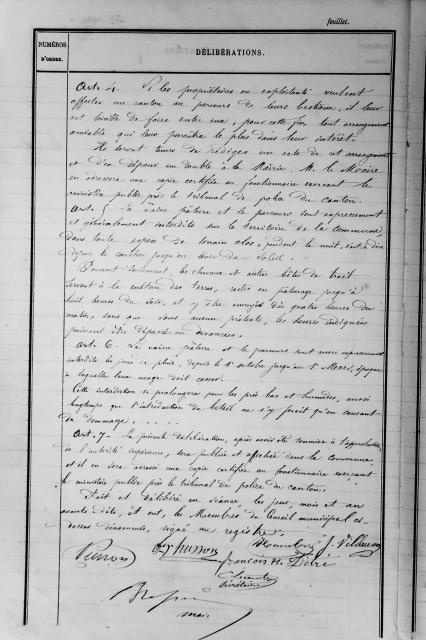 feuillet.
NUMÉROS
D'ORDRE.
DÉLIBÉRATIONS.
Art. 4. Si les propriétaires ou exploitants veulent
affecter un canton au parcours de leurs bestiaux, il leur
est de faire entre eux, pour cette fin, tout arrangement
amiable qui leur paraîtra le plus dans leur intérêt.
Ils seront tenus de rédiger un acte de cet arrangement
et d'en déposer un double à la Mairie. M. le Maire
en adressera une copie certifiée au fonctionnaire exerçant le
ministère public près le tribunal de police du canton.
Art. 5 La vaine pâture et le parcours sont expressément
et généralement interdits sur le territoire de la commune,
dans toute espèce de terrain clos, pendant la nuit, c'est à dire
depuis le coucher jusqu'au lever du soleil.
Pourront seulement, les chevaux et autres bêtes de trait
servant à la culture des terres, rester en pâturage jusqu'à
huit heures du soir, et y être envoyés dès quatre heures du
matin, sans que sous aucun prétexte, les heures indiquées
puissent être dépassées ou devancées.
Art. 6. La vaine pâture et le parcours sont aussi expressément
interdits les jours de pluie, depuis le 1er octobre jusqu'au 1er Mars, époque
à laquelle leur usage doit cesser.
Cette interdiction se prolongera pour les prés bas et humides, aussi
longtemps que l'introduction du bétail ne s'y ferait qu'en causant
du dommage. . . . .
Art. 7 - La présente délibération, après avoir été soumise à l'approbation
de l'autorité supérieure, sera publiée et affichée dans la Commune,
et il en sera adressé une copie certifiée au fonctionnaire exerçant
le ministère public près le tribunal de police du canton.
Fait et délibéré en séance, les jour, mois et an
avant dits, et ont, les Membres du Conseil municipal ci-
dessus dénommés, signé au registre.
Pierson
husson
J. Villaume
françois
Secrétaire
maire